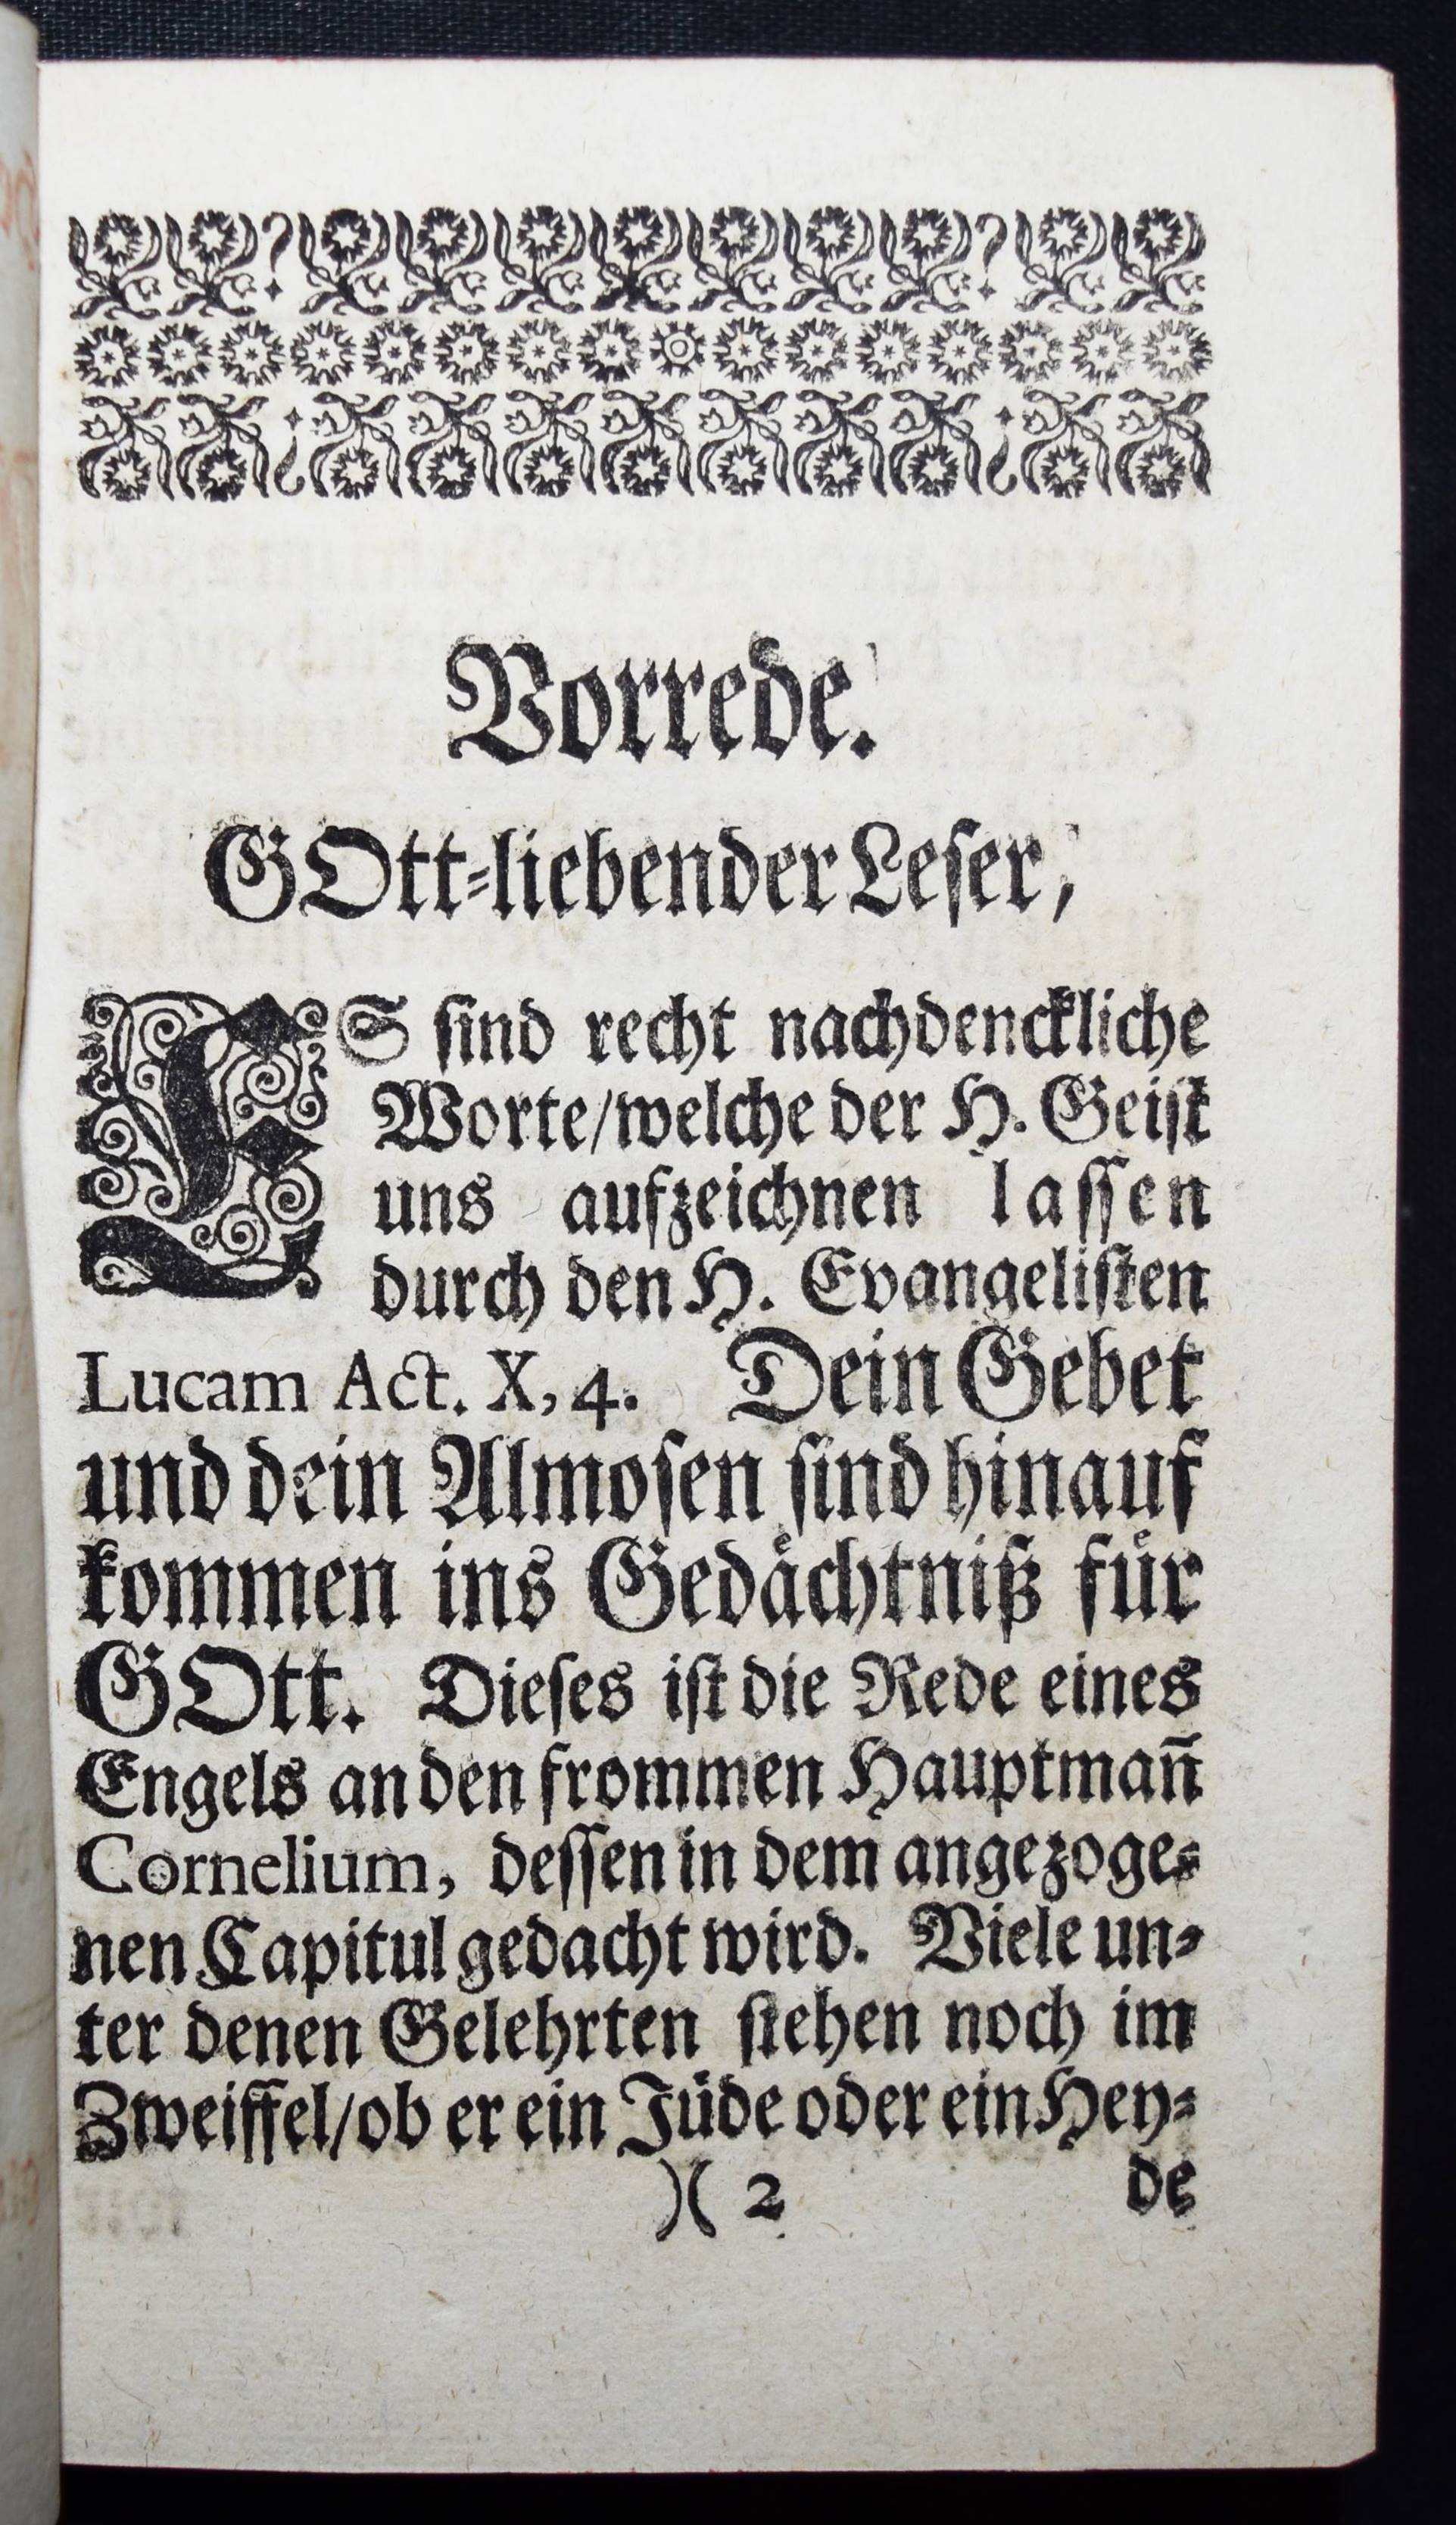 Vorrede.
GOtt-liebender Leser,
ES sind recht nachdenckliche
Worte/welche der H. Geist
uns aufzeichnen lassen
durch den H. Evangelisten
Lucam Act. X, 4. Dein Gebet
und dein Almosen sind hinauf
kommen ins Gedaͤchtniß fuͤr
GOtt. Dieses ist die Rede eines
Engels an den frommen Hauptmañ
Cornelium, dessen in dem angezoge-
nen Capitul gedacht wird. Viele un-
ter denen Gelehrten stehen noch im
Zweiffel/ob er ein Jüde oder ein Hey-
)( 2 de